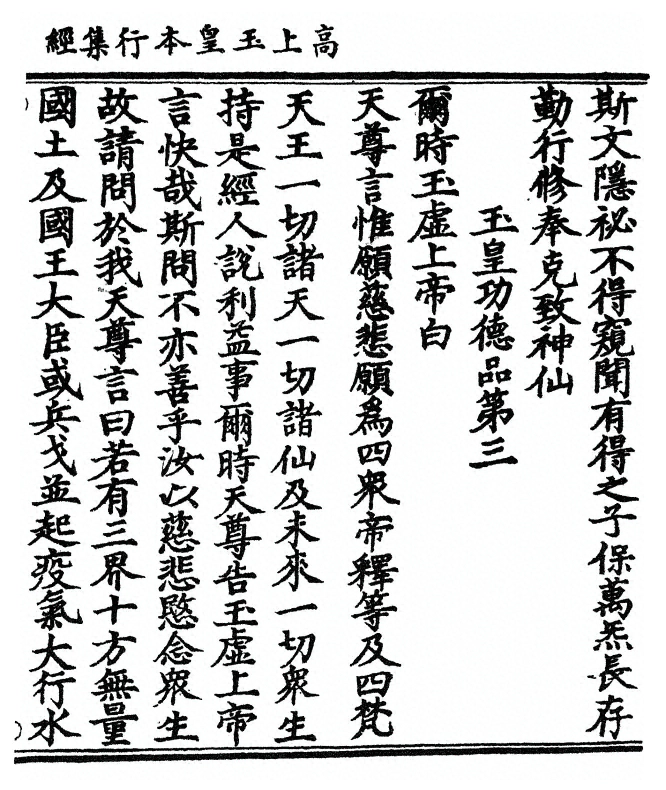 高上玉皇本行集經
斯文隱祕不得窺聞有得之子保萬炁長存
勤行修奉克致神仙
玉皇功德品第三
爾時玉虛上帝白
天尊言惟願慈悲願為四眾帝釋等及四梵
天王一切諸天一切諸仙及未來一切眾生
持是經人說利益事爾時天尊告玉虛上帝
言快哉斯問不亦善乎汝以慈悲愍念眾生
故請問於我天尊言曰若有三界十方無量
國土及國王大臣或兵戈並起疫氣大行水